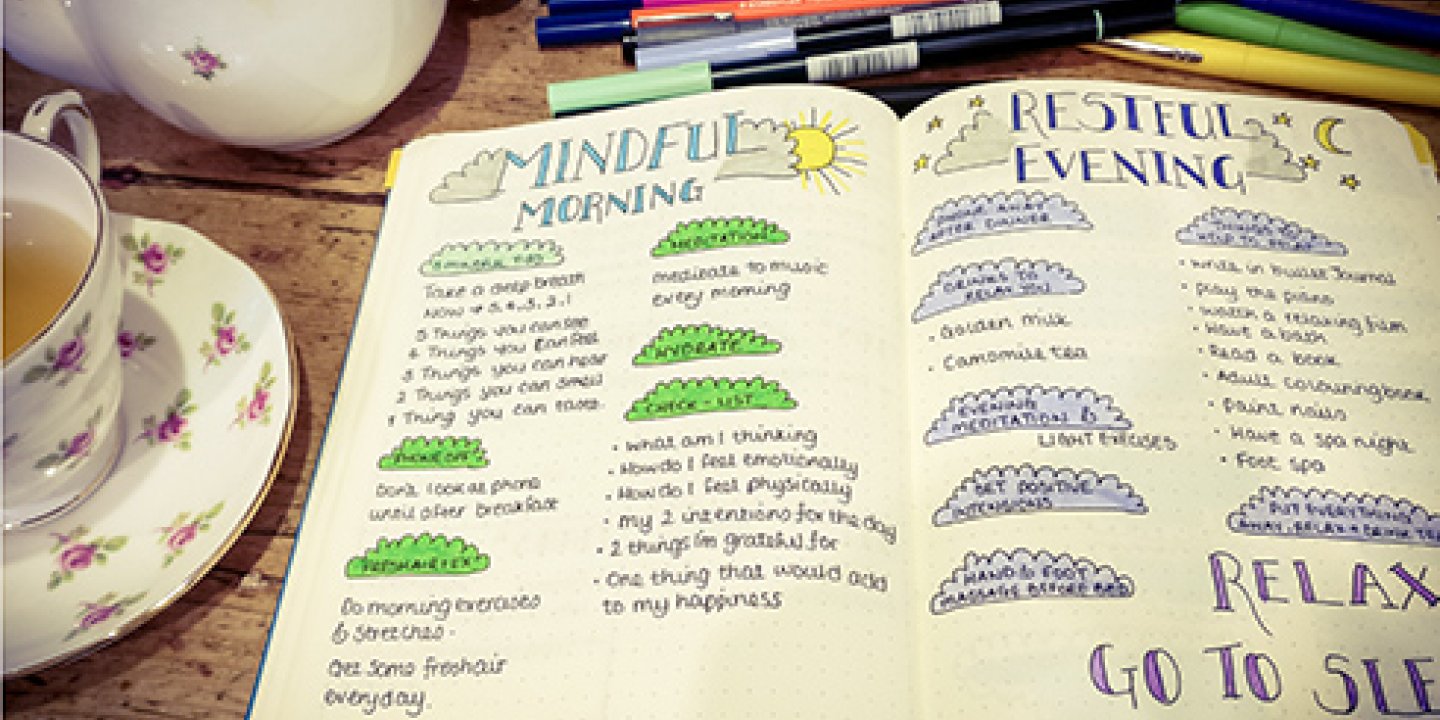 MINDFUL
MORNING
Take a deep breath
NOW → 5, 4, 3, 2, 1
5 Things you can see
4 Things you can feel
3 Things you can hear
2 Things you can smell
1 Thing you can taste.
PHONE OFF
Don't look at phone
until after breakfast
FRESH AIR + EX
Do morning exercises
& stretches.
Get some fresh air
everyday.
MEDITATION
meditate to music
every morning
HYDRATE
CHECK-LIST
• What am I thinking
• How do I feel emotionally
• How do I feel physically
• My 2 intentions for the day
• 2 things I'm grateful for
• One thing that would add
to my happiness
RESTFUL
EVENING
PHONE AWAY
AFTER DINNER
DRINKS TO
RELAX YOU
• Golden milk
• Camomile tea
EVENING
MEDITATION &
LIGHT EXCISES
SET POSITIVE
INTENSIONS
HAND & FOOT
MASSAGE BEFORE BED
THINGS TO
HELP TO RELAX
• Write in Bullet Journal
• Play the piano
• Watch a relaxing film
• Have a bath
• Read a book
• Adult colouring book
• Paint nails
• Have a spa night
• Foot spa
PUT EVERYTHING
AWAY, RELAX + DRINK TEA
RELAX
GO TO SLE